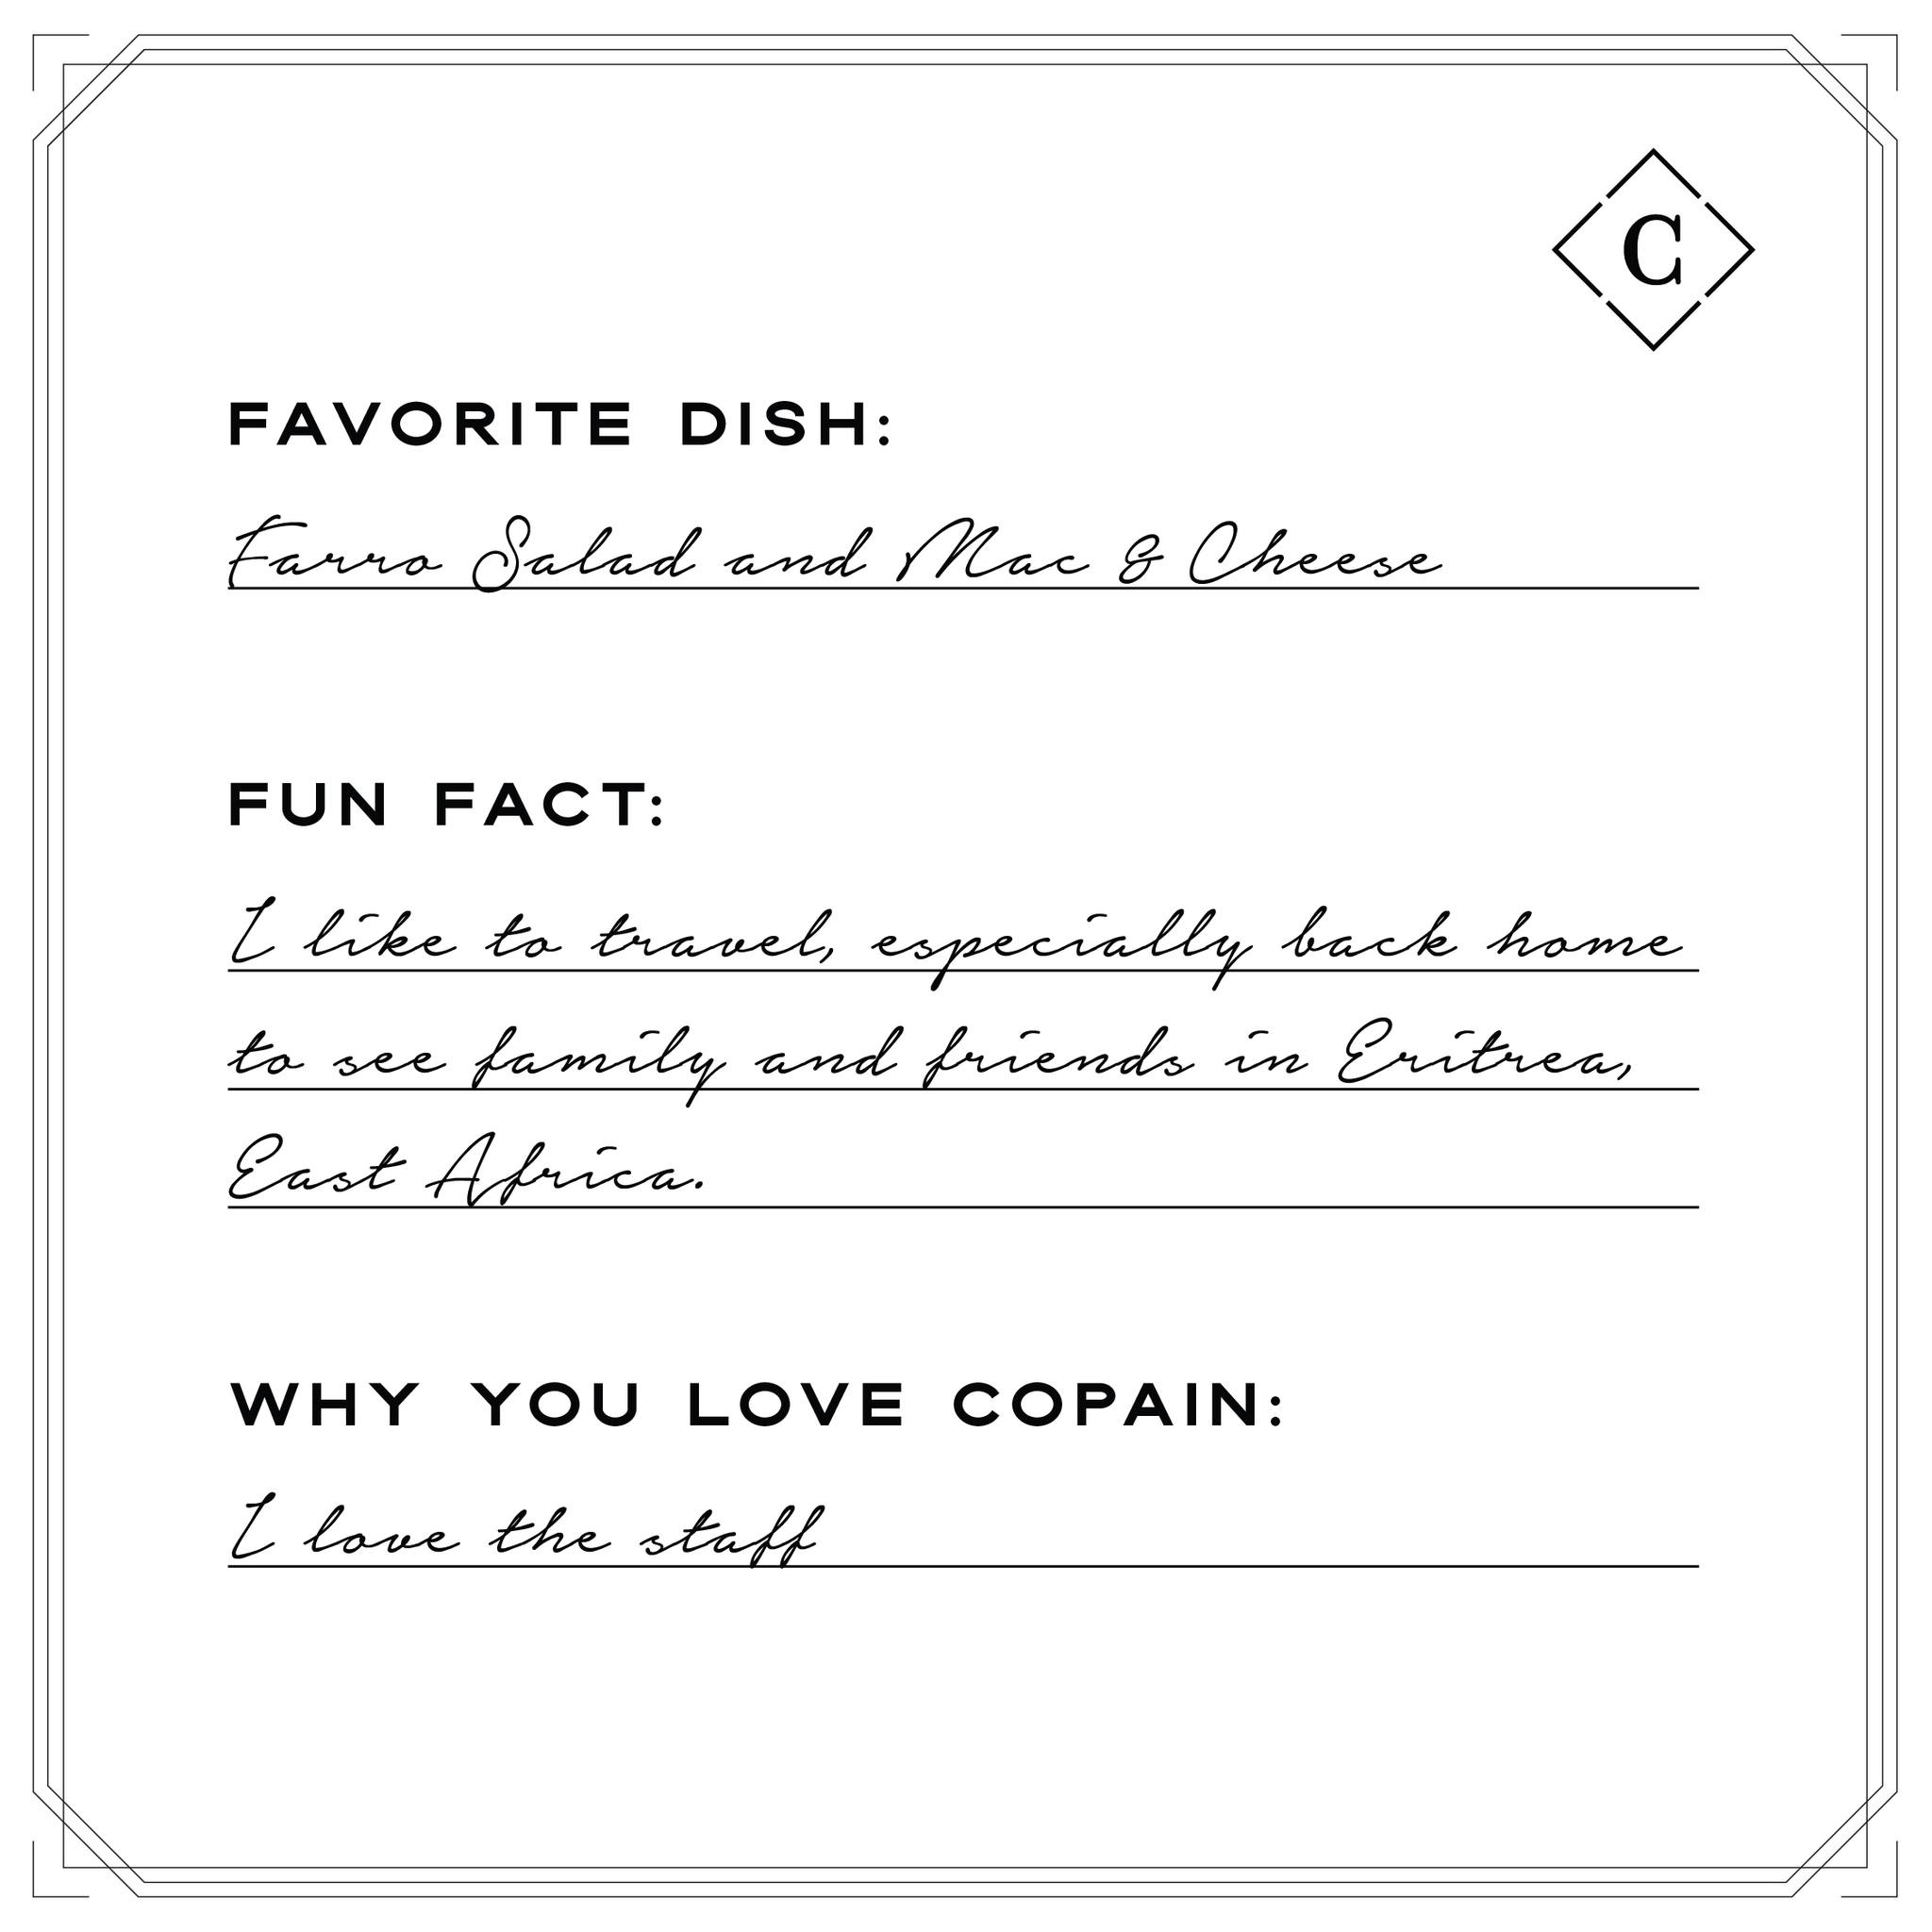 C
FAVORITE DISH:
Farro Salad and Mac & Cheese
FUN FACT:
I like to travel, especially back home
to see family and friends in Eritrea,
East Africa.
WHY YOU LOVE COPAIN:
I love the staff